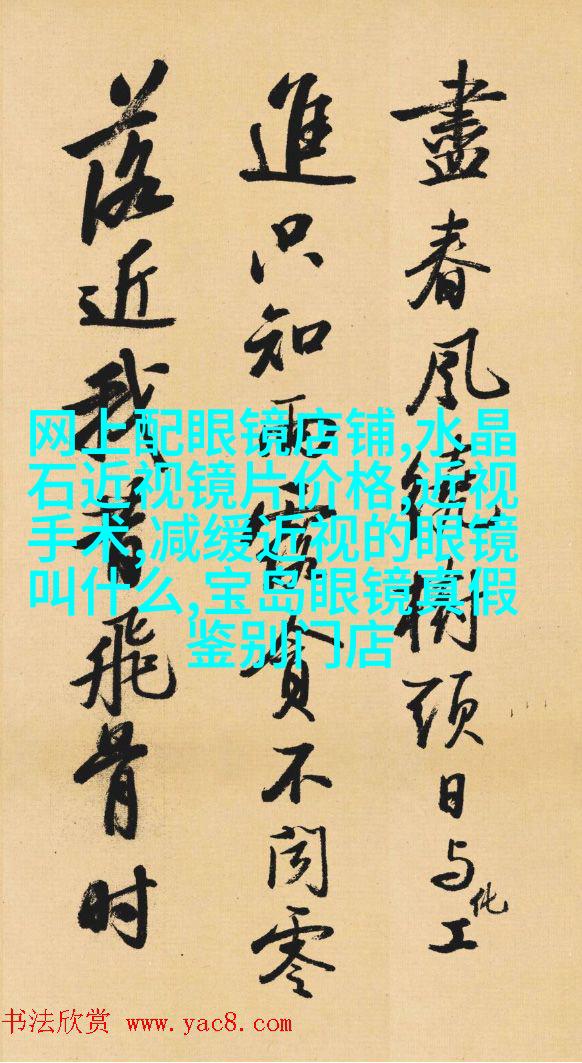 盡春風繞樹頭日与化工
進只知雨露貪不聞零
落近我昔飛骨时
网上配眼镜店铺,水晶
石近视镜片价格,近视
手术,减缓近视的眼镜
叫什么,宝岛眼镜真假
鉴别门店
书法欣赏 www.yac8.com